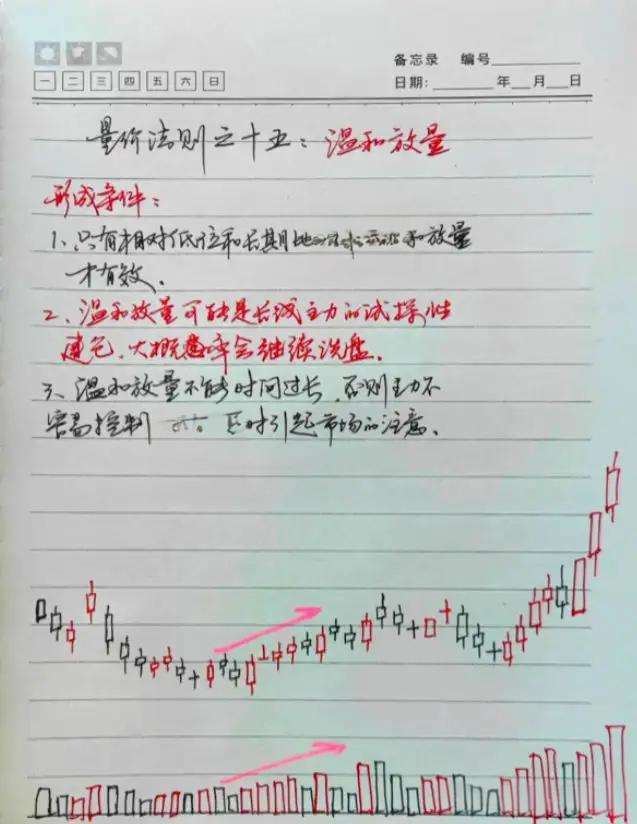 备忘录 编号
一 二 三 四 五 六 日
日期: 年 月 日
量价法则之十五：温和放量
形成条件：
1、只有相对低位和长期地 和放量
才有效、
2、温和放量可能是长线主力的试探性
建仓、大概率会继续洗盘、
3、温和放量不能时间过长、否则主力不
容易控制 引起市场的注意、